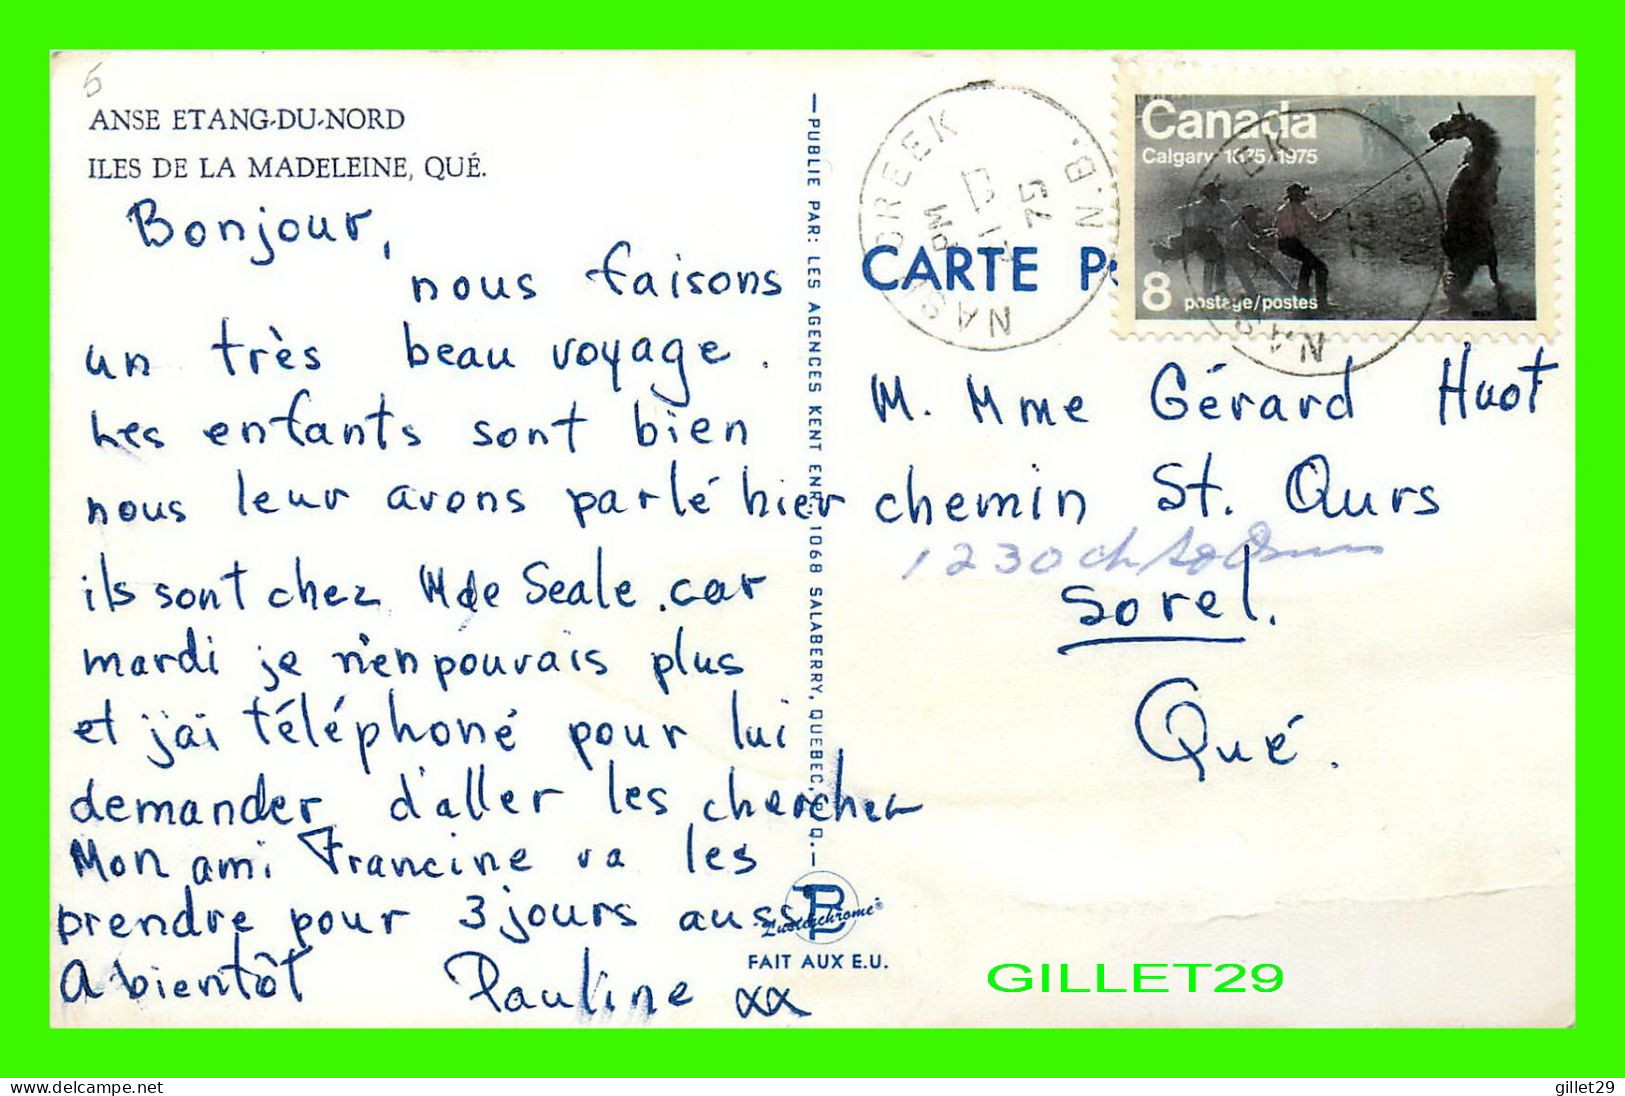 5
ANSE ETANG-DU-NORD
ILES DE LA MADELEINE, QUÉ.
Bonjour,
nous faisons
un très beau voyage.
Les enfants sont bien
nous leur avons parlé hier
ils sont chez Mde Seale. car
mardi je n'en pouvais plus
et j'ai téléphoné pour lui
demander d'aller les chercher
Mon ami Francine va les
prendre pour 3 jours aussi
A bientôt Pauline xx
—PUBLIE PAR: LES AGENCES KENT ENR. 1068 SALABERRY, QUEBEC, P.Q.—
Lusterchrome
FAIT AUX E.U.
CARTE
NASH CREEK N.B.
PM
75
Canada
Calgary 1875/1975
8 postage/postes
M. Mme Gérard Huot
chemin St. Ours
1230 ch
Sorel.
Qué.
GILLET29
delcampe.net
gillet29